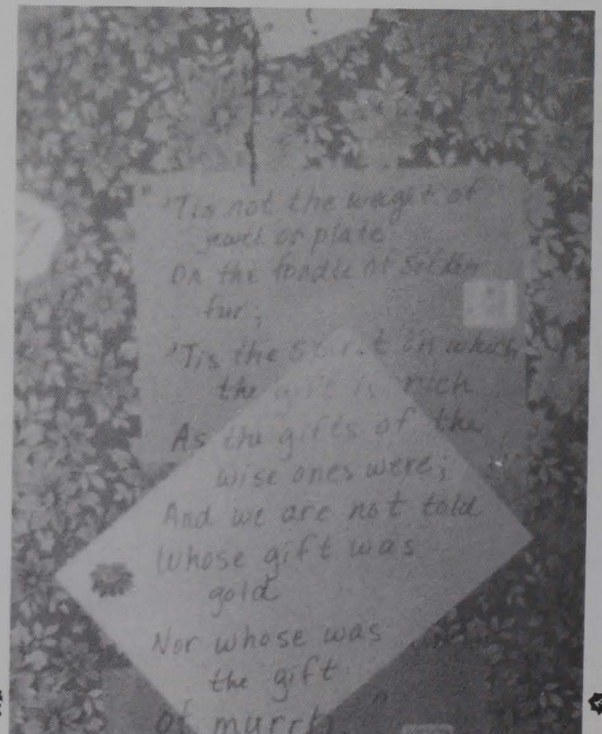 " 'Tis not the weight of
jewel or plate
Or the fondle of silk or
fur;
'Tis the spirit in which
the gift is rich
As the gifts of the
wise ones were;
And we are not told
Whose gift was
gold
Nor whose was
the gift
of myrrh. "